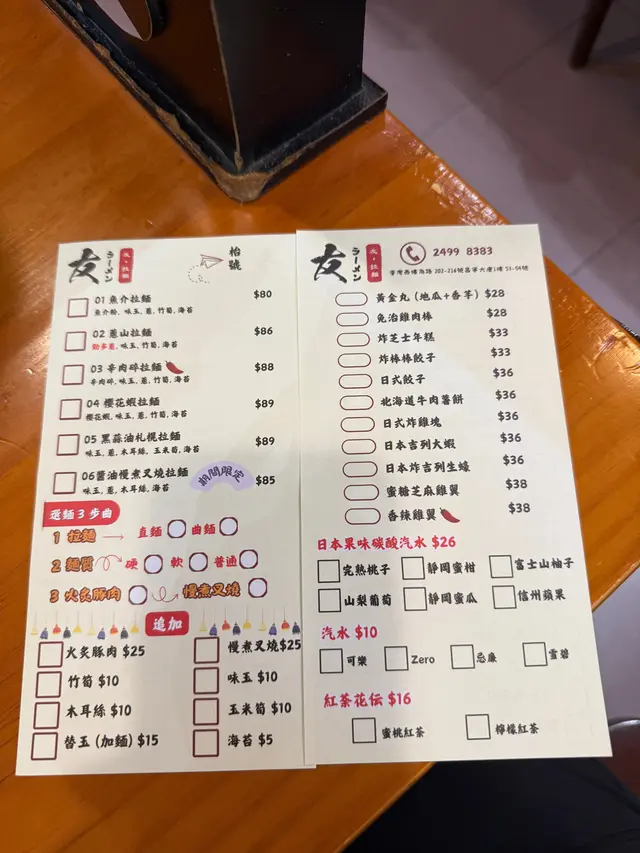 友
ラーメン
友・拉麵
枱號
01 魚介拉麵 $80
魚介粉, 味玉, 蔥, 竹筍, 海苔
02 蔥山拉麵 $86
勁多蔥, 味玉, 竹筍, 海苔
03 辛肉碎拉麵 $88
辛肉碎, 味玉, 蔥, 竹筍, 海苔
04 櫻花蝦拉麵 $89
櫻花蝦, 味玉, 蔥, 竹筍, 海苔
05 黑蒜油札幌拉麵 $89
味玉, 蔥, 木耳絲, 玉米筍, 海苔
06醬油慢煮叉燒拉麵 期間限定 $85
味玉, 蔥, 木耳絲, 海苔
選麵 3 步曲
1 拉麵 直麵 曲麵
2 麵質 硬 軟 普通
3 火炙豚肉 慢煮叉燒
追加
火炙豚肉 $25 慢煮叉燒$25
竹筍 $10 味玉 $10
木耳絲 $10 玉米筍 $10
替玉 (加麵) $15 海苔 $5
友
ラーメン
友・拉麵
2499 8383
荃灣西樓角路 202-216號昌寧大廈1樓 53-04號
黃金丸 (地瓜+香芋) $28
免治雞肉棒 $28
炸芝士年糕 $33
炸棒棒餃子 $33
日式餃子 $36
北海道牛肉薯餅 $36
日式炸雞塊 $36
日本吉列大蝦 $36
日本炸吉列生蠔 $36
蜜糖芝麻雞翼 $38
香辣雞翼 $38
日本果味碳酸汽水 $26
完熟桃子 靜岡蜜柑 富士山柚子
山梨葡萄 靜岡蜜瓜 信州蘋果
汽水 $10
可樂 Zero 忌廉 雪碧
紅茶花伝 $16
蜜桃紅茶 檸檬紅茶